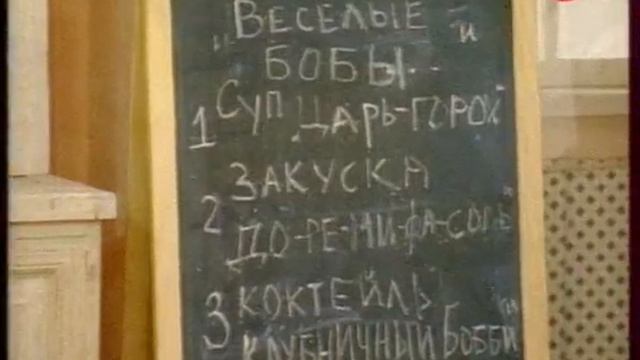 „ВЕСЕЛЫЕ
БОБЫ"
1 СУП „ЦАРЬ-ГОРОХ"
2 ЗАКУСКА
„ДО-РЕ-МИ-ФА-СОЛЬ"
3 КОКТЕЙЛЬ
КЛУБНИЧНЫЙ БОББИ